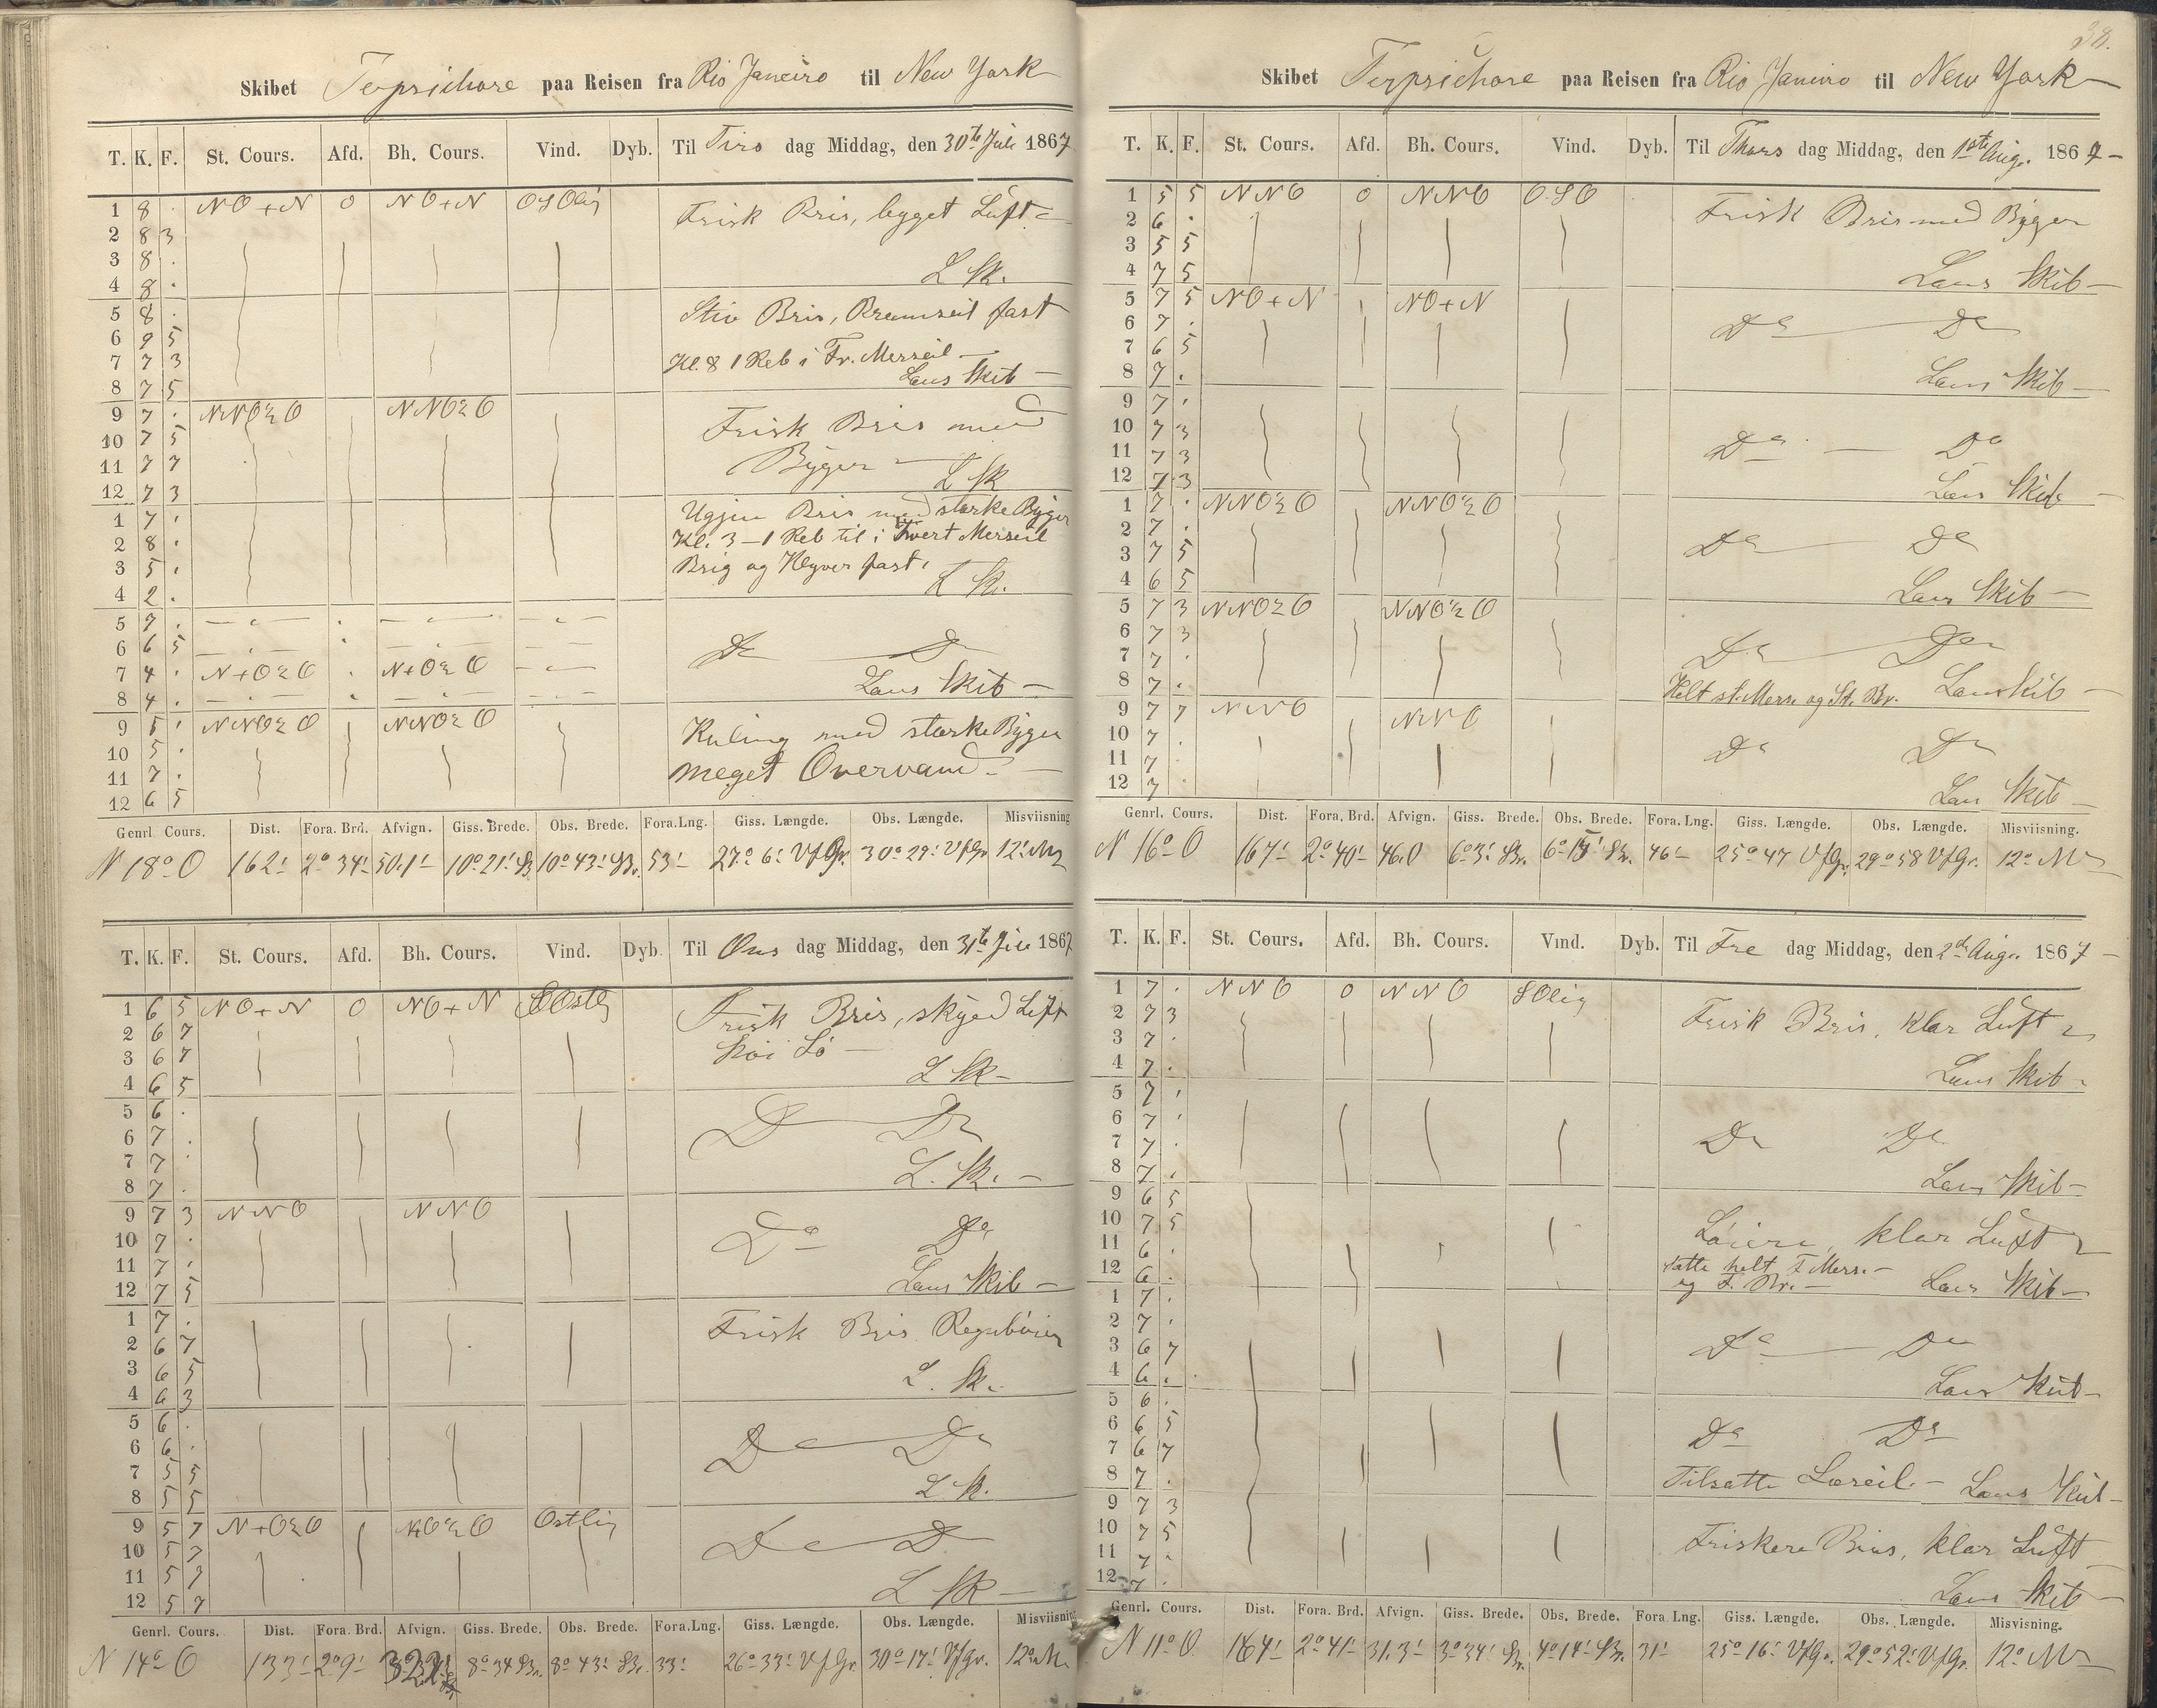 38.
Skibet Terpsichore paa Reisen fra Rio Janeiro til New York
T. K. F. St. Cours. Afd. Bh. Cours. Vind. Dyb. Til Tirs dag Middag, den 30te Juli 1867
1 8 . NO+N 0 NO+N OSOlig Frisk Bris, bygget Luft
2 8 3
3 8 .
4 8 . L Sk.
5 8 . Stiv Bris, Bramseil fast
6 9 5
7 7 3 Kl. 8 1 Reb i Fr. Merseil
8 7 5 Lens Skib
9 7 . NNO½O NNO½O Frisk Bris med
10 7 5
11 7 7 Byger L Sk
12 7 3
1 7 . Ugjen Bris med stærke Byger
2 8 . Kl. 3 – 1 Reb til i hvert Merseil
3 5 . Brig og Klyver fast.
4 2 . L Sk.
5 7 .
6 6 5 Do Do
7 4 . N+O½O . N+O½O
8 4 . Lens Skib
9 5 . NNO½O NNO½O Kuling med stærke Byger
10 5 .
11 7 . meget Overvand
12 6 5
Genrl. Cours. Dist. Fora. Brd. Afvign. Giss. Brede. Obs. Brede. Fora.Lng. Giss. Længde. Obs. Længde. Misviisning
N 18° O 162' 2° 34' 50.1' 10° 21' SB. 10° 43' SB. 53' 27° 6' VfGr. 30° 29' VfGr 12°
T. K. F. St. Cours. Afd. Bh. Cours. Vind. Dyb. Til Ons dag Middag, den 31te Juli 1867
1 6 5 NO+N 0 NO+N Ostlig Frisk Bris, skyed Luft
2 6 7 Høi Sø
3 6 7
4 6 5 L Sk
5 6 .
6 7 . Do Do
7 7 .
8 7 . L. Sk.
9 7 3 NNO NNO
10 7 . Do Do
11 7 .
12 7 5 Lens Skib
1 7 . Frisk Bris Regnbøier
2 6 7
3 6 5 L. Sk.
4 6 3
5 6 .
6 6 . Do Do
7 5 5
8 5 5 L Sk.
9 5 7 N+O½O Ostlig
10 5 7 Do Do
11 5 7
12 5 7 L Sk
Genrl. Cours. Dist. Fora. Brd. Afvign. Giss. Brede. Obs. Brede. Fora.Lng. Giss. Længde. Obs. Længde. Misviisning
N 14° O 133' 2° 9' 8° 34 SB. 8° 43' SB. 33' 26° 33' VfGr 30° 17' VfGr. 12°
Skibet Terpsichore paa Reisen fra Rio Janeiro til New York
T. K. F. St. Cours. Afd. Bh. Cours. Vind. Dyb. Til Thors dag Middag, den 1ste Aug. 1867
1 5 5 NNO 0 NNO O.SO Frisk Bris med Byger
2 6 .
3 5 5
4 7 5 Lens Skib
5 7 5 NO+N NO+N
6 7 . Do Do
7 6 5
8 7 . Lens Skib
9 7 .
10 7 3
11 7 3 Do Do
12 7 3 Lens Skib
1 7 . NNO½O NNO½O
2 7 .
3 7 5 Do Do
4 6 5 Lens Skib
5 7 3 NNO½O NNO½O
6 7 3
7 7 . Do Do
8 7 . Helt st. Mers. og St. Br. Lens Skib
9 7 7 NNO NNO
10 7 . Do Do
11 7 .
12 7 . Lens Skib
Genrl. Cours. Dist. Fora. Brd. Afvign. Giss. Brede. Obs. Brede. Fora. Lng. Giss. Længde. Obs. Længde. Misviisning.
N 16° O 167' 2° 40' 46.0 6° 3' SB. 6° 15' SB. 46' 25° 47 VfGr. 29° 58 VfGr. 12°
T. K. F. St. Cours. Afd. Bh. Cours. Vind. Dyb. Til Fre dag Middag, den 2den Aug. 1867
1 7 . NNO 0 NNO SOlig Frisk Bris, klar Luft
2 7 3
3 7 .
4 7 . Lens Skib
5 7 .
6 7 .
7 7 . Do Do
8 7 . Lens Skib
9 6 5
10 7 5 Løiere, klar Luft
11 6 . satte helt F Mers.
12 6 . og F. Br. Lens Skib
1 7 .
2 7 .
3 6 7 Do Do
4 6 . Lens Skib
5 6 .
6 6 5 Do Do
7 6 7
8 7 . Tilsatte Læseil. Lens Skib
9 7 3
10 7 5 Friskere Bris, klar Luft
11 7 .
12 7 . Lens Skib
Genrl. Cours. Dist. Fora. Brd. Afvign. Giss. Brede. Obs. Brede. Fora Lng. Giss. Længde. Obs. Længde. Misvisning.
N 11° O. 164' 2° 41' 31.3' 3° 34' SB. 4° 14' SB. 31' 25° 16' VfGr. 29° 52' VfGr. 12°